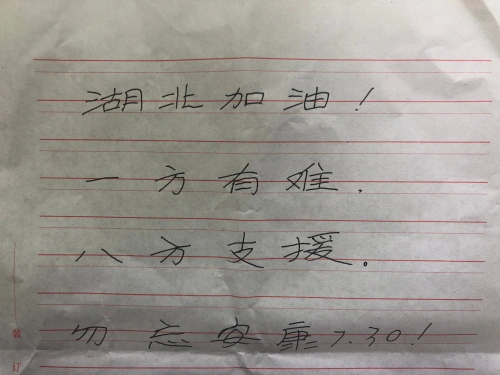 湖北加油！
一方有难.
八方支援。
勿忘安康7.30！
装
订